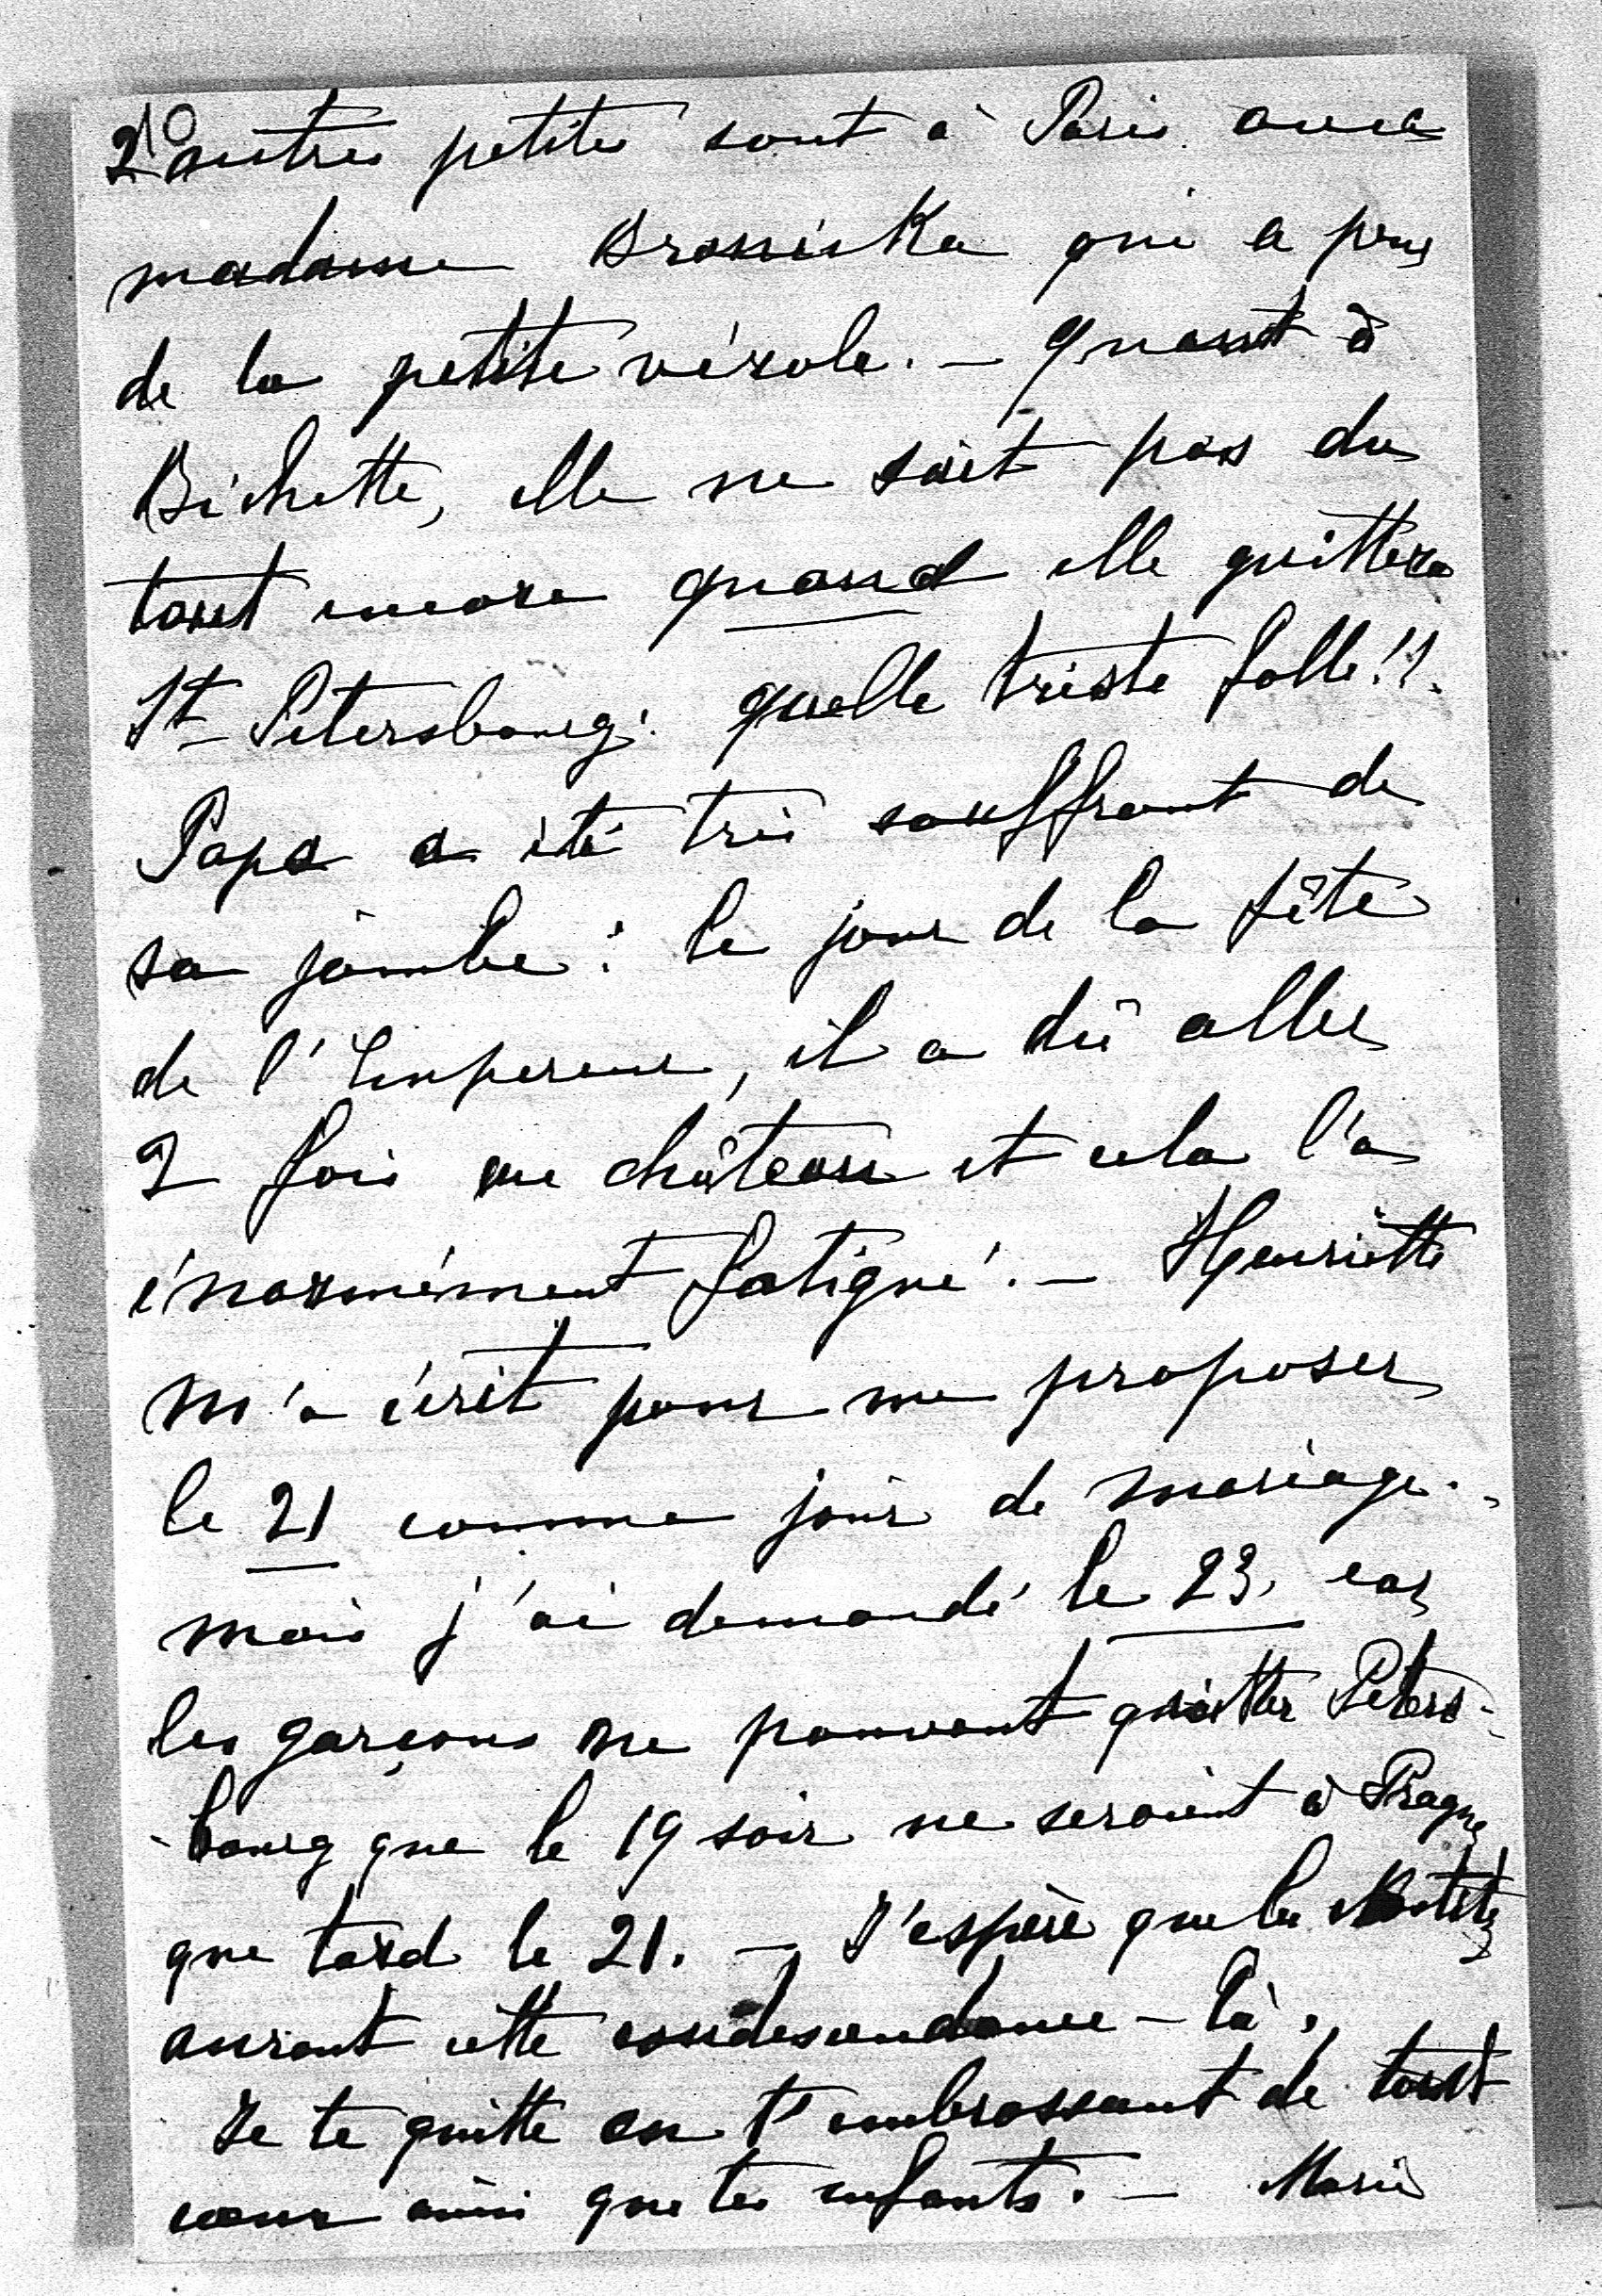 2 autres petites sont à Paris avec
madame qui a peur
de la petite vérole. — quant à
Bichette, elle ne sait pas du
tout encore quand elle quittera
St-Petersbourg: quelle triste folle!!.
Papa a été très souffrant de
sa jambe: le jour de la fête
de l'Empereur, il a dû aller
2 fois au château et cela l'a
énormément fatigué. — Henriette
m'a écrit pour me proposer
le 21 comme jour de mariage.
mais j'ai demandé le 23, car
les garçons ne pouvant quitter Peters-
-bourg que le 19 soir ne seraient à Prague
que tard le 21. — J'espère que les
auront cette condescendance-là.
Je te quitte en t'embrassant de tout
cœur ainsi que tes enfants. — Marie